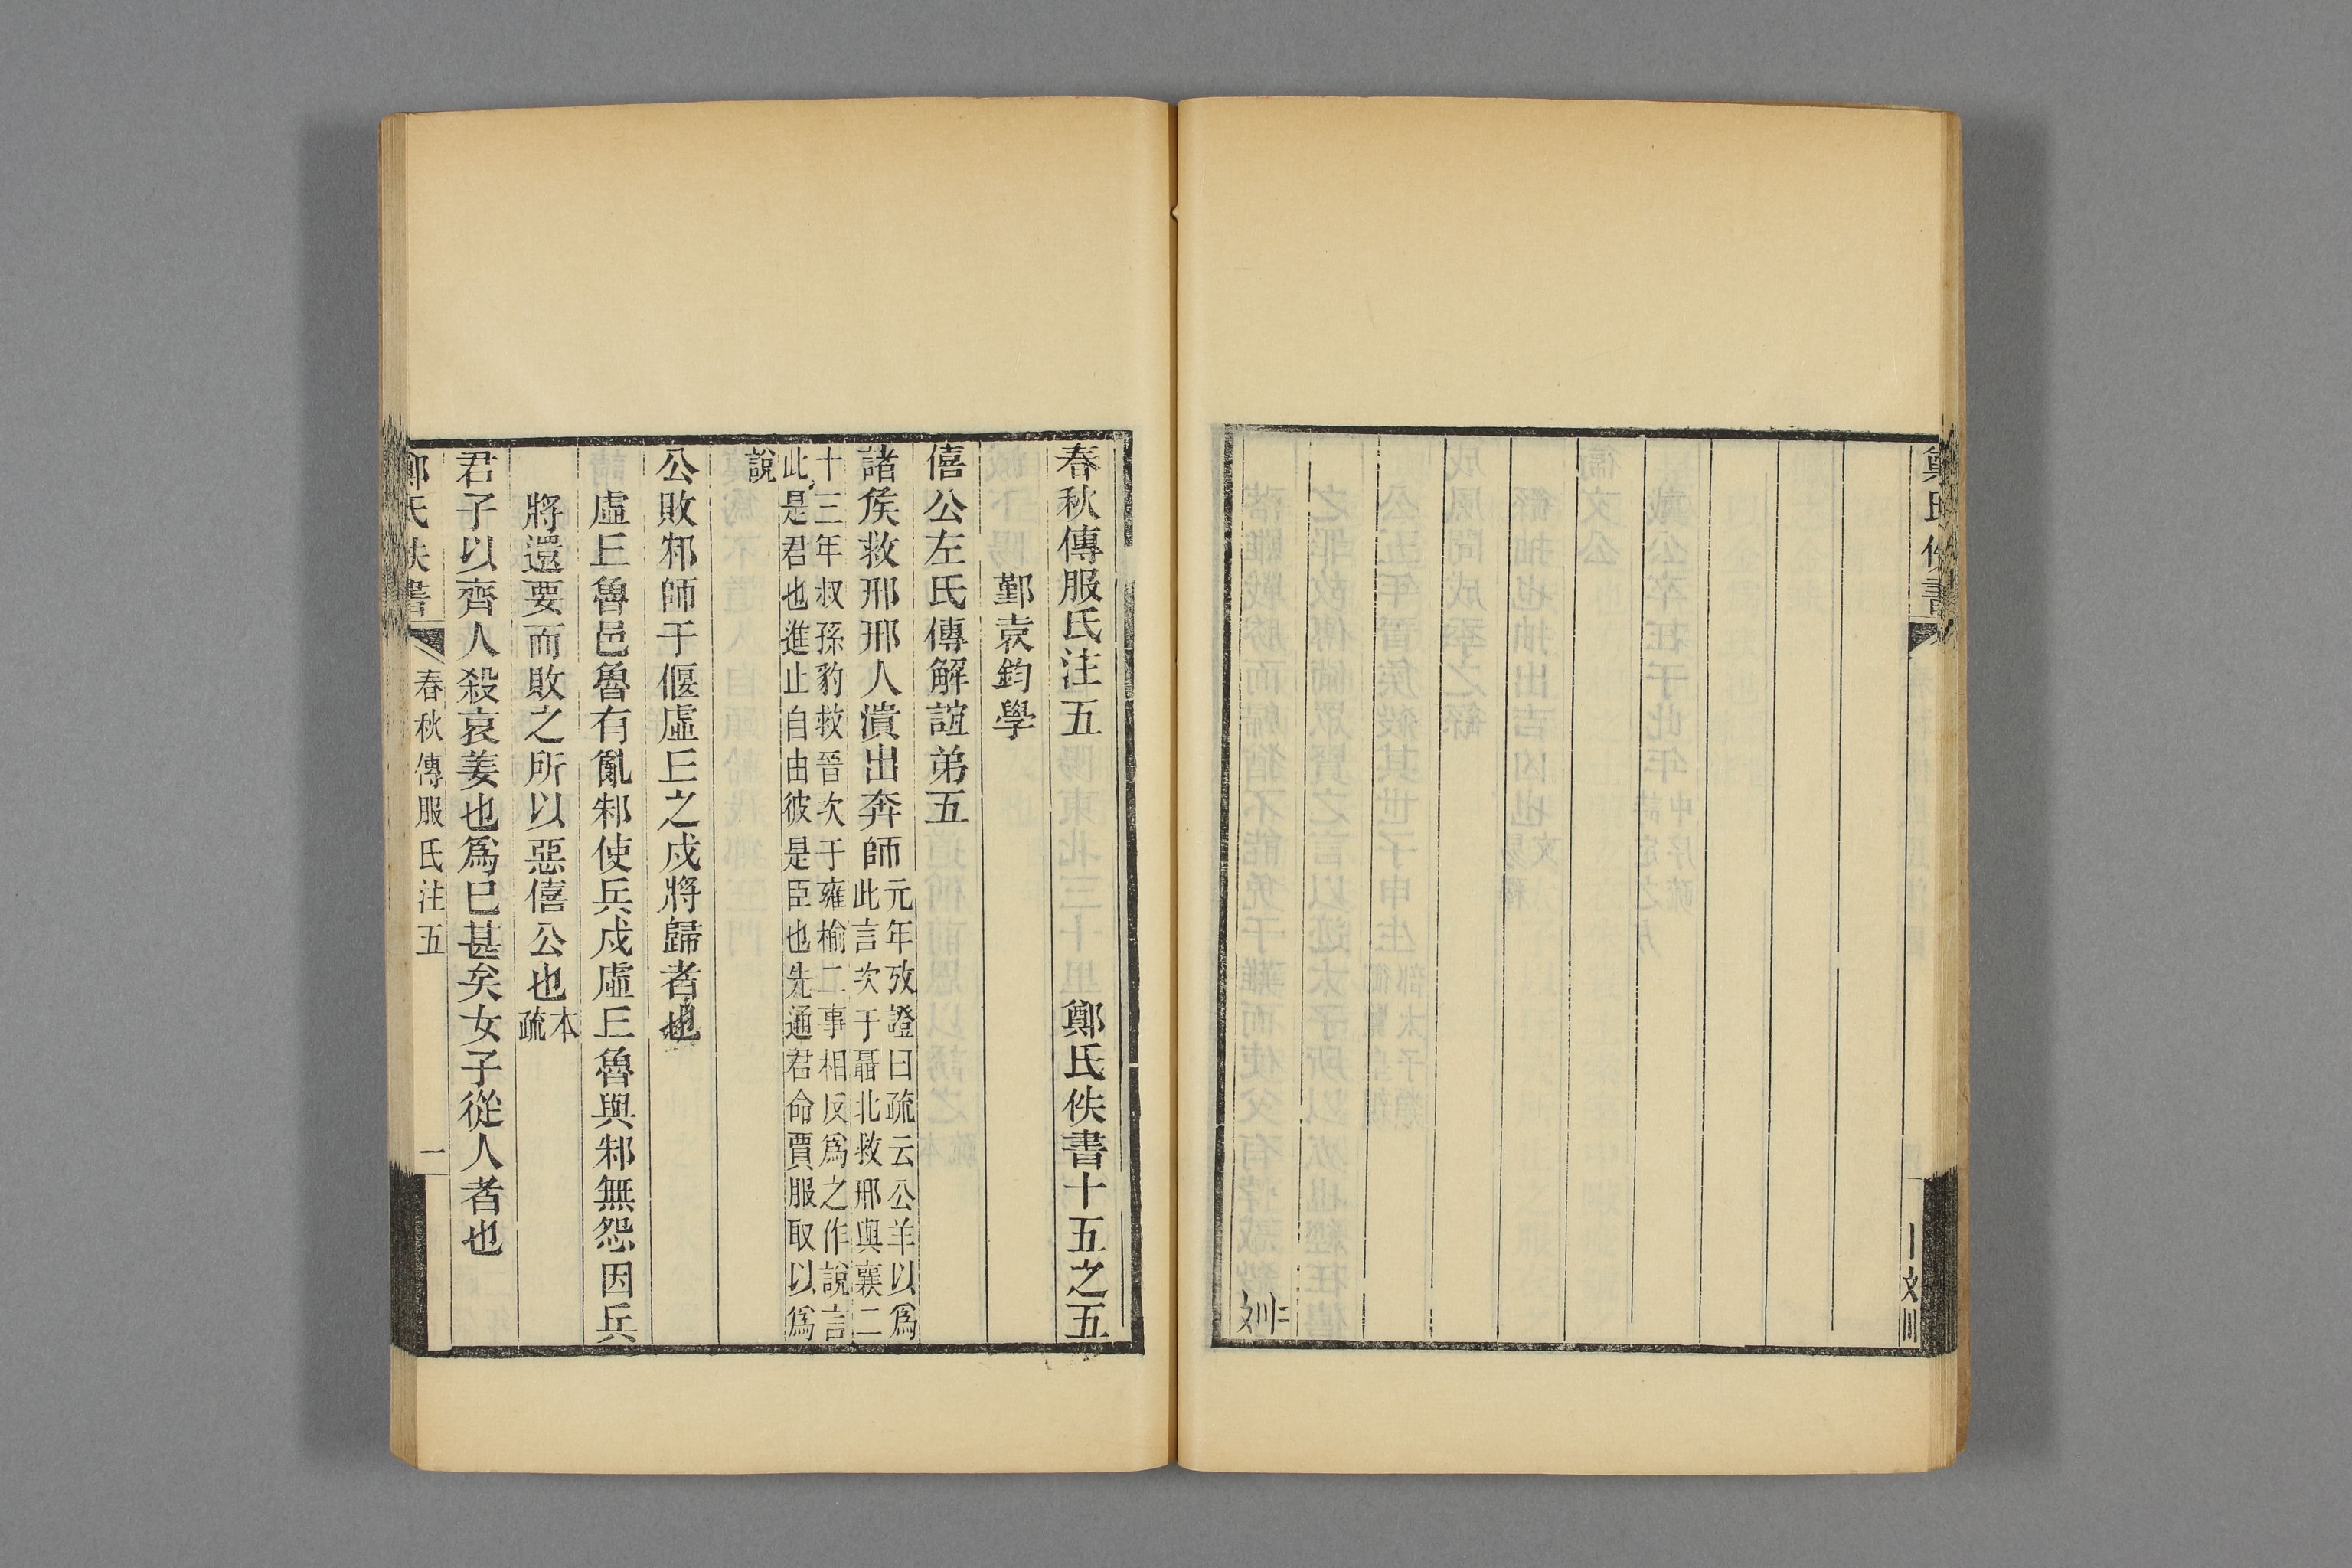 鄭氏佚書
文川
文川二
春秋傳服氏注五 鄭氏佚書十五之五
鄞袁鈞學
僖公左氏傳解誼弟五
諸侯救邢邢人潰出奔師元年攷證曰疏云公羊以爲
此言次于聶北救邢與襄二
十三年叔孫豹救晉次于雍榆二事相反爲之作說言
此是君也進止自由彼是臣也先通君命賈服取以爲
說
公敗邾師于偃虛丘之戍將歸者也
虛丘魯邑魯有亂邾使兵戍虛丘魯與邾無怨因兵
將還要而敗之所以惡僖公也本
疏
君子以齊人殺哀姜也爲巳甚矣女子從人者也
鄭氏佚書 春秋傳服氏注五 一